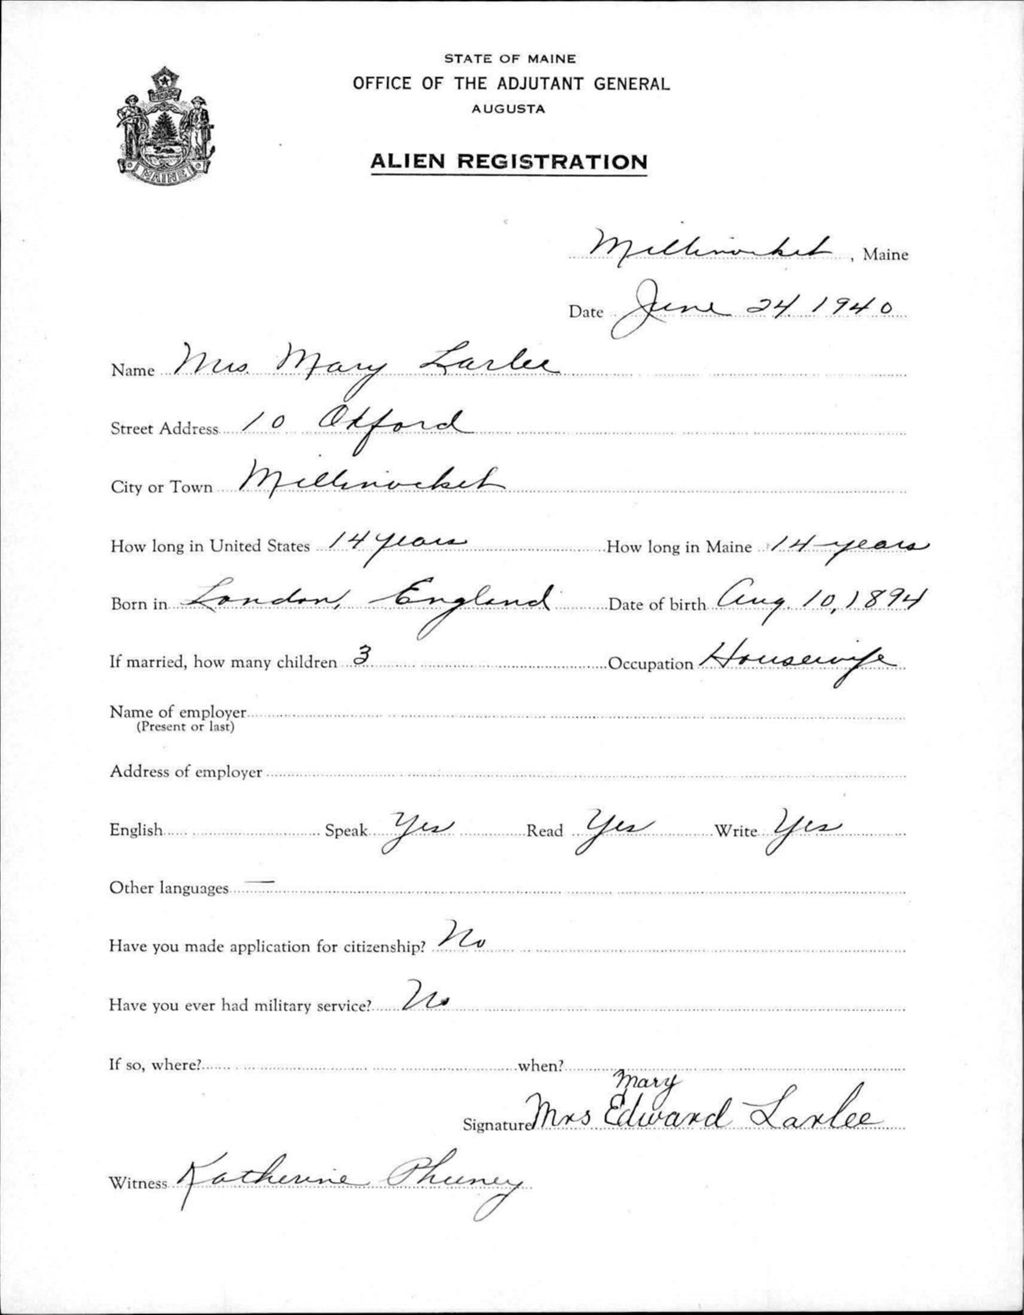 STATE OF MAINE
OFFICE OF THE ADJUTANT GENERAL
AUGUSTA
ALIEN REGISTRATION
MAINE
Millinocket, Maine
Date June 24 1940
Name Mrs. Mary Larlee
Street Address 10 Oxford
City or Town Millinocket
How long in United States 14 years How long in Maine 14 years
Born in London, England Date of birth Aug. 10, 1894
If married, how many children 3 Occupation Housewife
Name of employer
(Present or last)
Address of employer
English Speak Yes Read Yes Write Yes
Other languages —
Have you made application for citizenship? No
Have you ever had military service? No
If so, where? when?
Mary
Signature Mrs Edward Larlee
Witness Katherine